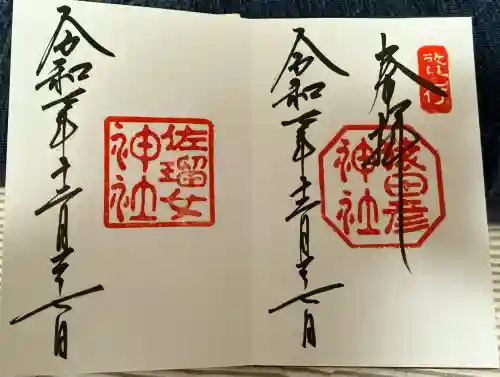 啓行
奉拝
猿田彦
神社
令和一年十二月二十七日
佐瑠女
神社
令和一年十二月二十七日